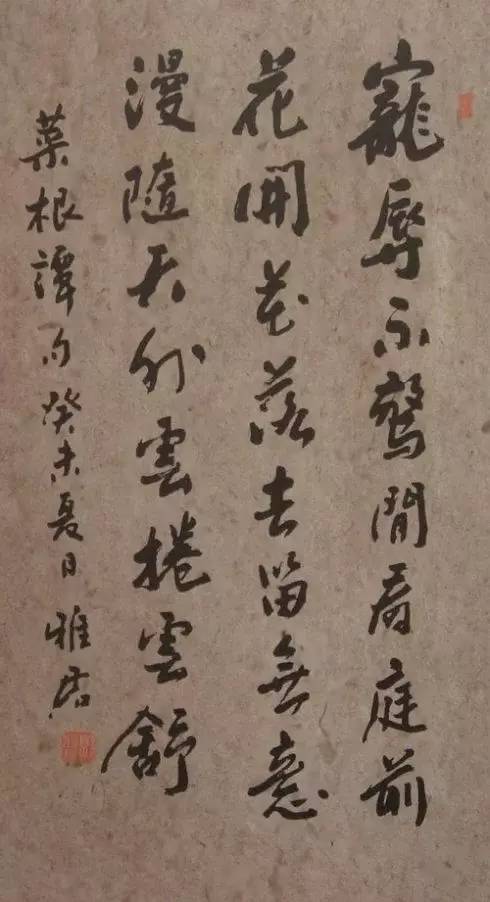 寵辱不驚閒看庭前
花開花落去留無意
漫隨天外雲捲雲舒
菜根譚句癸未夏日雅君